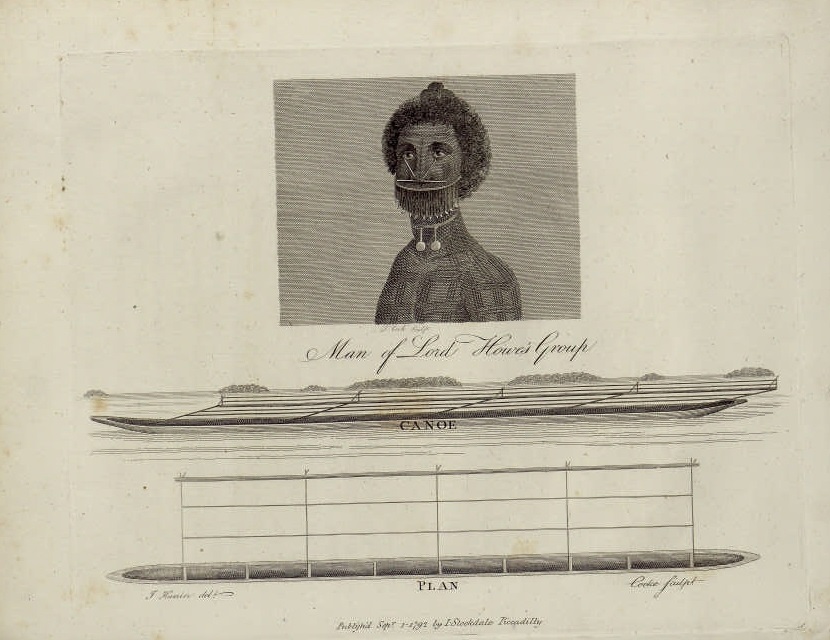 Man of Lord Howe's Group
CANOE
PLAN
J. Hunter delt.
Cooke Sculpt.
Publish'd Sepr. 1-1792 by I. Stockdale Piccadilly